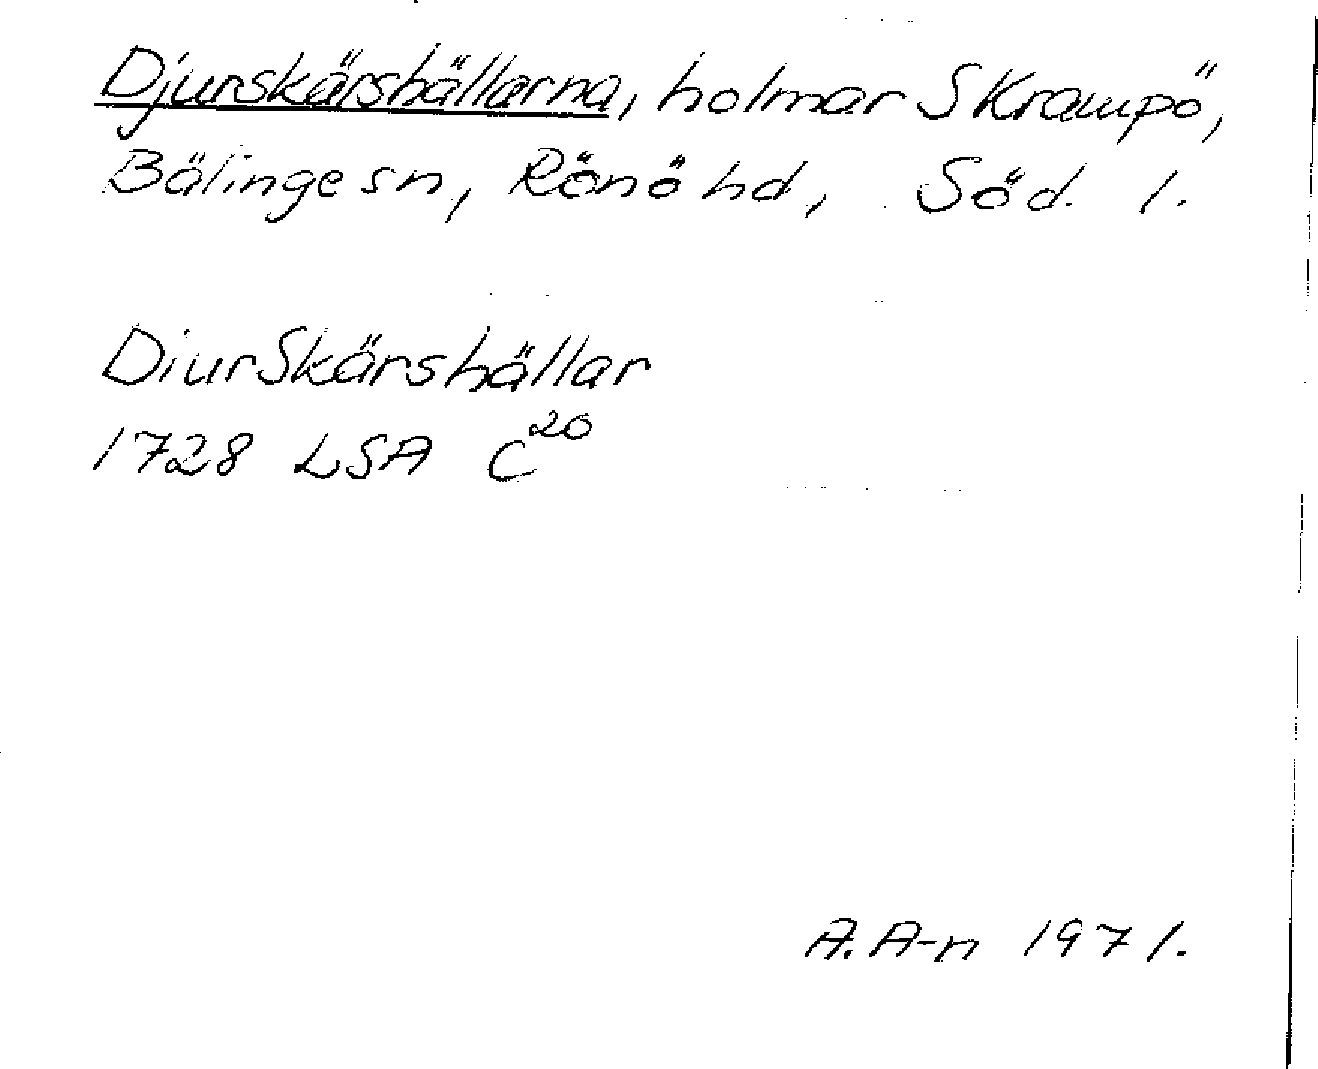 Djurskärshällarna, holmar S Krampö,
Bälinge sn, Rönö hd, Söd. l.
DiurSkärshällar
1728 LSA C²⁰
A. A-n 1971.